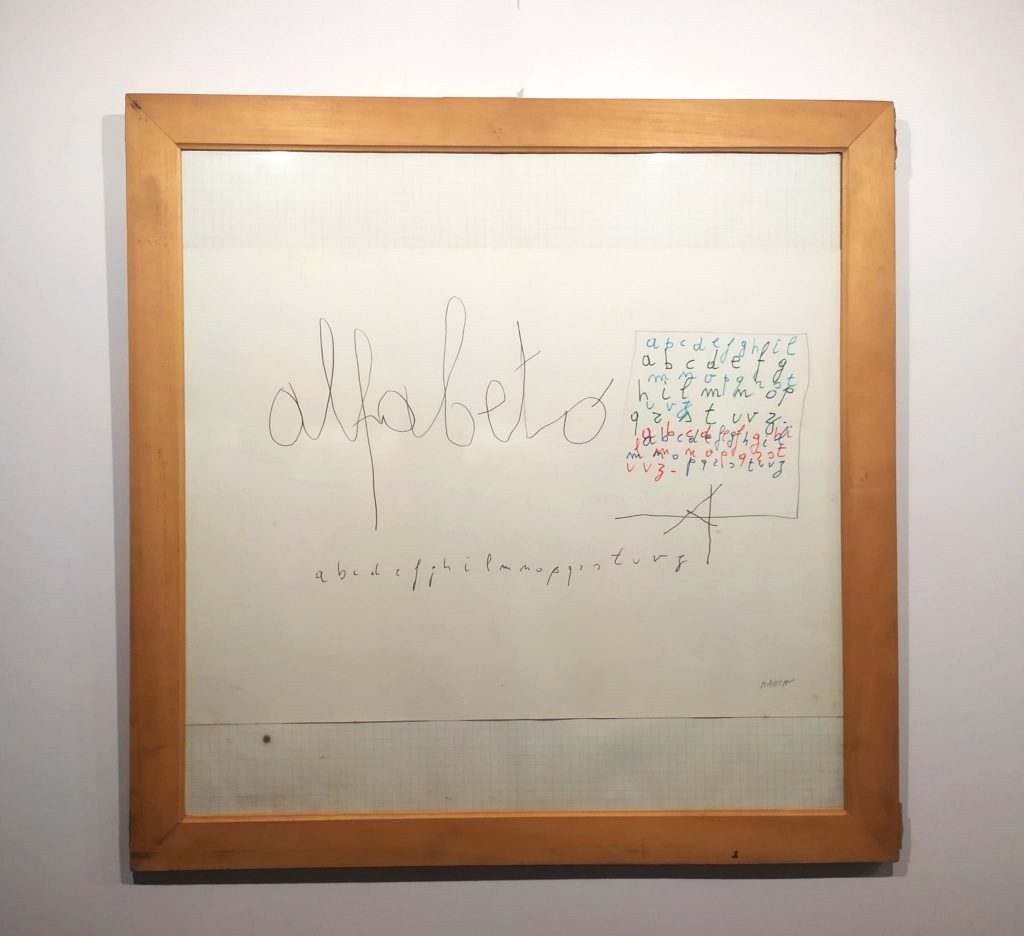 alfabeto
a b c d e f g h i l
a b c d e f g
m n o p q r s t
h i l m n o p
u v z
q r s t u v z.
a b c d e f g h i
a b c d e f g h i l
l m n o p q r s t
m n o p q r s t u v z
u v z.
A
a b c d e f g h i l m n o p q r s t u v z